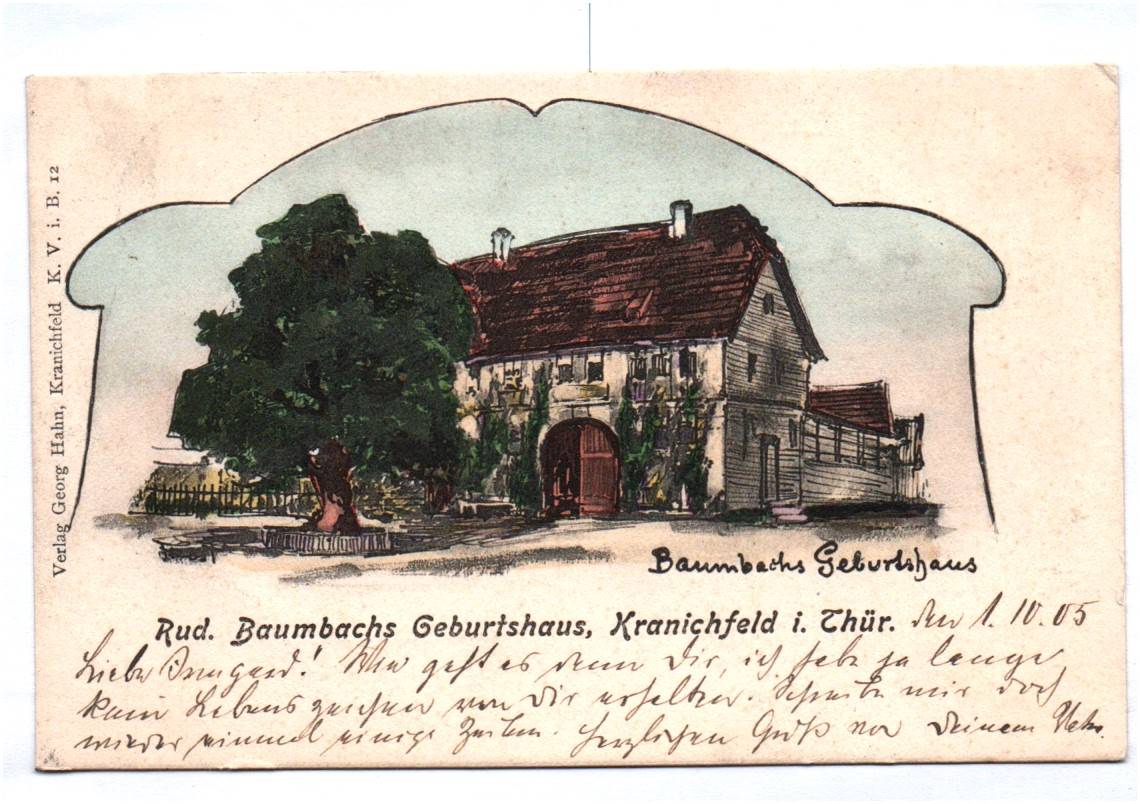 Verlag Georg Hahn, Kranichfeld K. V. i. B. 12
Baumbachs Geburtshaus
Rud. Baumbachs Geburtshaus, Kranichfeld i. Thür. den 1. 10. 05
Liebe Irmgard! Wie geht es denn Dir, ich habe ja lange
kein Lebenszeichen von Dir erhalten. Schreibe mir doch
wieder einmal einige Zeilen. Herzlichen Gruß von Deinem